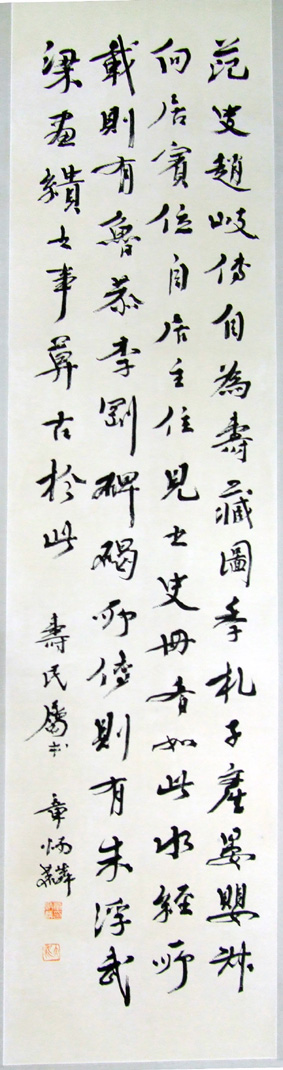 范史趙岐傳自為壽藏圖季札子產晏嬰叔
向居賓位自居主位見之史冊者如此水經所
載則有魯恭李剛碑碣所傳則有朱浮武
梁畫繢之事莫古於此 壽民屬書 章炳麟